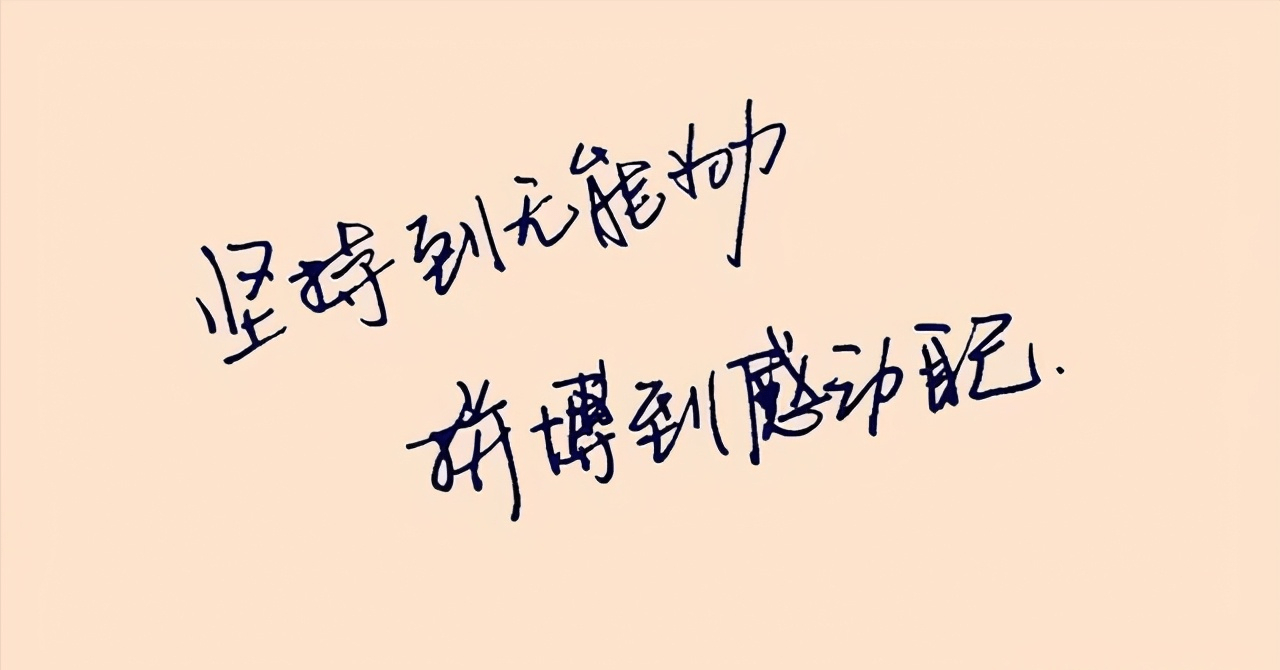 坚持到无能为力
拼搏到感动自己.